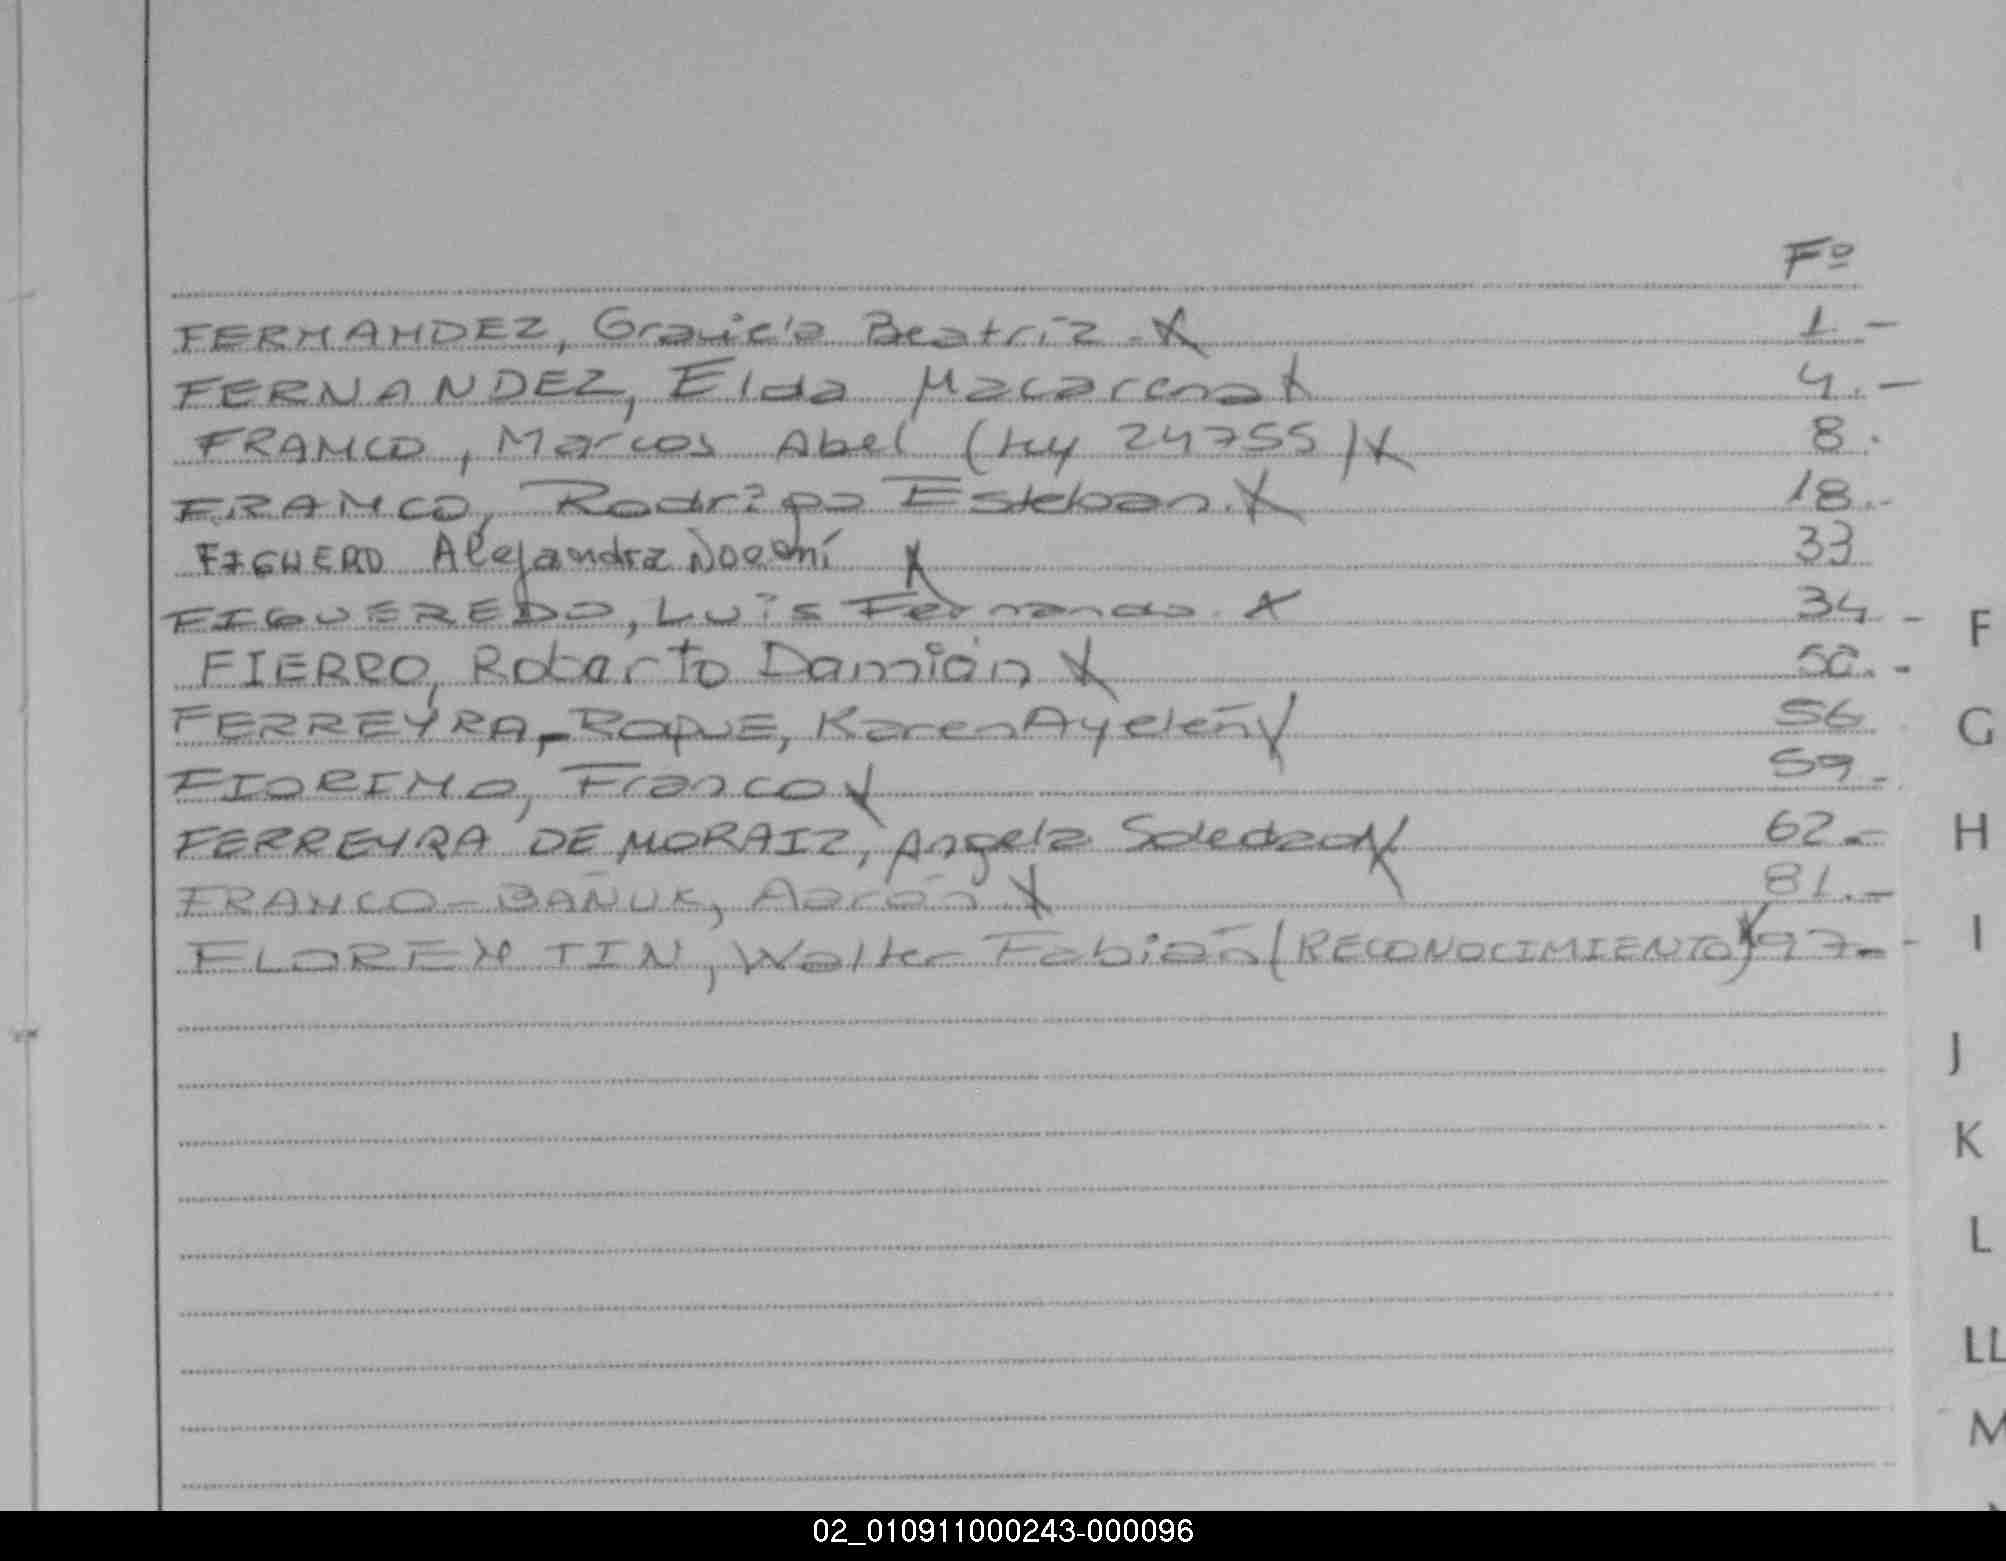 Fº
FERNANDEZ, Graciela Beatriz. X 1.-
FERNANDEZ, Elda Macarena X 4.-
FRANCO, Marcos Abel (Ley 24755) X 8.
FRANCO, Rodrigo Esteban. X 18.-
FIGUERO Alejandra Noemí X 33
FIGUEREDO, Luis Fernando. X 34.-
FIERRO, Roberto Damián X 50.-
FERREYRA-ROQUE, Karen Ayelén X 56
FIORINO, Franco X 59.
FERREYRA DE MORAIZ, Angela Soledad X 62.-
FRANCO-BAÑUK, Aarón X 81.-
FLORENTIN, Walter Fabián (RECONOCIMIENTO) X 97.-
F
G
H
I
J
K
L
LL
M
02_010911000243-000096